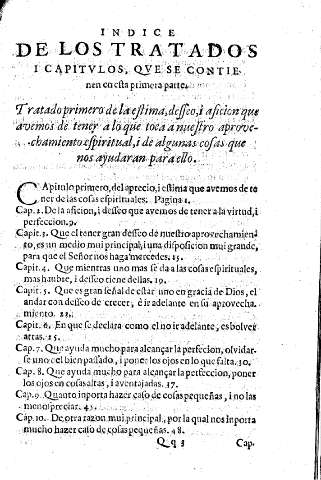 INDICE
DE LOS TRATADOS
I CAPITVLOS, QVE SE CONTIE-
nen en esta primera parte.
Tratado primero de la estima, desseo, i aficion que
avemos de tener a lo que toca a nuestro aprove-
chamiento espiritual, i de algunas cosas que
nos ayudaran para ello.
CApitulo primero, del aprecio, i estima que avemos de te
ner de las cosas espirituales. Pagina 1.
Cap. 2. De la aficion, i desseo que avemos de tener a la virtud, i
perfeccion. 9.
Capit. 3. Que el tener gran desseo de nuestro aprovechamien
to, es un medio mui principal, i una disposicion mui grande,
para que el Señor nos haga mercedes. 15.
Capit. 4. Que mientras uno mas se da a las cosas espirituales,
mas hambre, i desseo tiene dellas. 19.
Capit. 5. Que es gran señal de estar uno en gracia de Dios, el
andar con desseo de crecer, e ir adelante en su aprovecha
miento. 22.
Capit. 6. En que se declara como el no ir adelante, es bolver
atras. 25.
Cap. 7. Que ayuda mucho para alcançar la perfeccion, olvidar-
se uno el bien passado, i poner los ojos en lo que falta. 30.
Cap. 8. Que ayuda mucho para alcançar la perfeccion, poner
los ojos en cosas altas, i aventajadas. 37.
Cap. 9. Quanto inporta hazer caso de cosas pequeñas, i no las
menospreciar. 43.
Cap. 10. De otra razon mui principal, por la qual nos inporta
mucho hazer caso de cosas pequeñas. 48.
Qq 3 Cap.